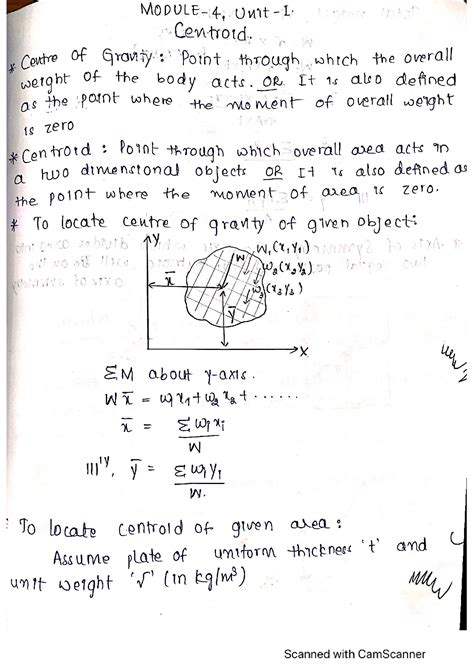 MODULE-4, Unit-I.
Centroid.
* Centre of Gravity : Point through which the overall
weight of the body acts. OR It is also defined
as the point where the moment of overall weight
is zero
* Centroid : Point through which overall area acts in
a two dimensional objects OR It is also defined as
the point where the moment of area is zero.
* To locate centre of gravity of given object:
Y
W₁(x₁y₁)
W
W₂(x₂y₂)
W₃(x₃y₃)
x̄
ȳ
X
ΣM about y-axis.
Wx̄ = w₁x₁ + w₂x₂ + ......
x̄ = Σ wᵢxᵢ
W
IIIly, ȳ = Σ wᵢyᵢ
W.
To locate centroid of given area :
Assume plate of uniform thickness 't' and
unit weight '√' (in kg/m³)
Scanned with CamScanner